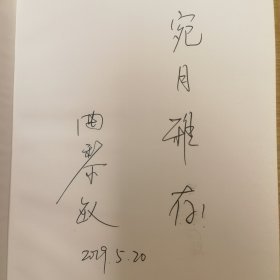 宛月雅存!
曲黎敏
2019.5.20